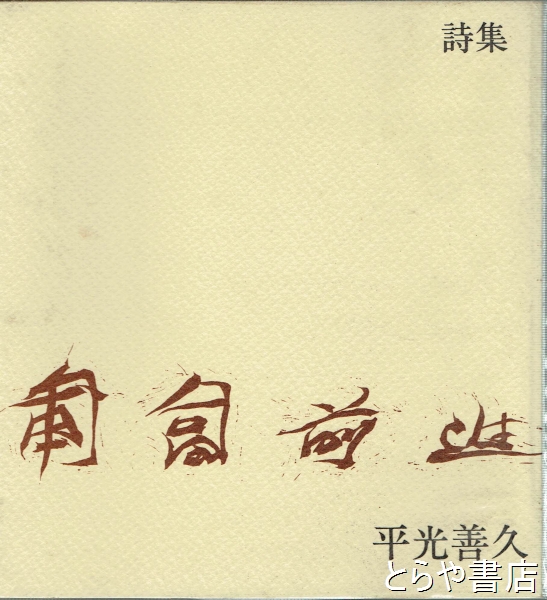 詩集
匍匐前進
平光善久
とらや書店